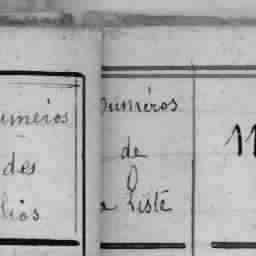 uméros
des
lios
numéros
de
la liste
11